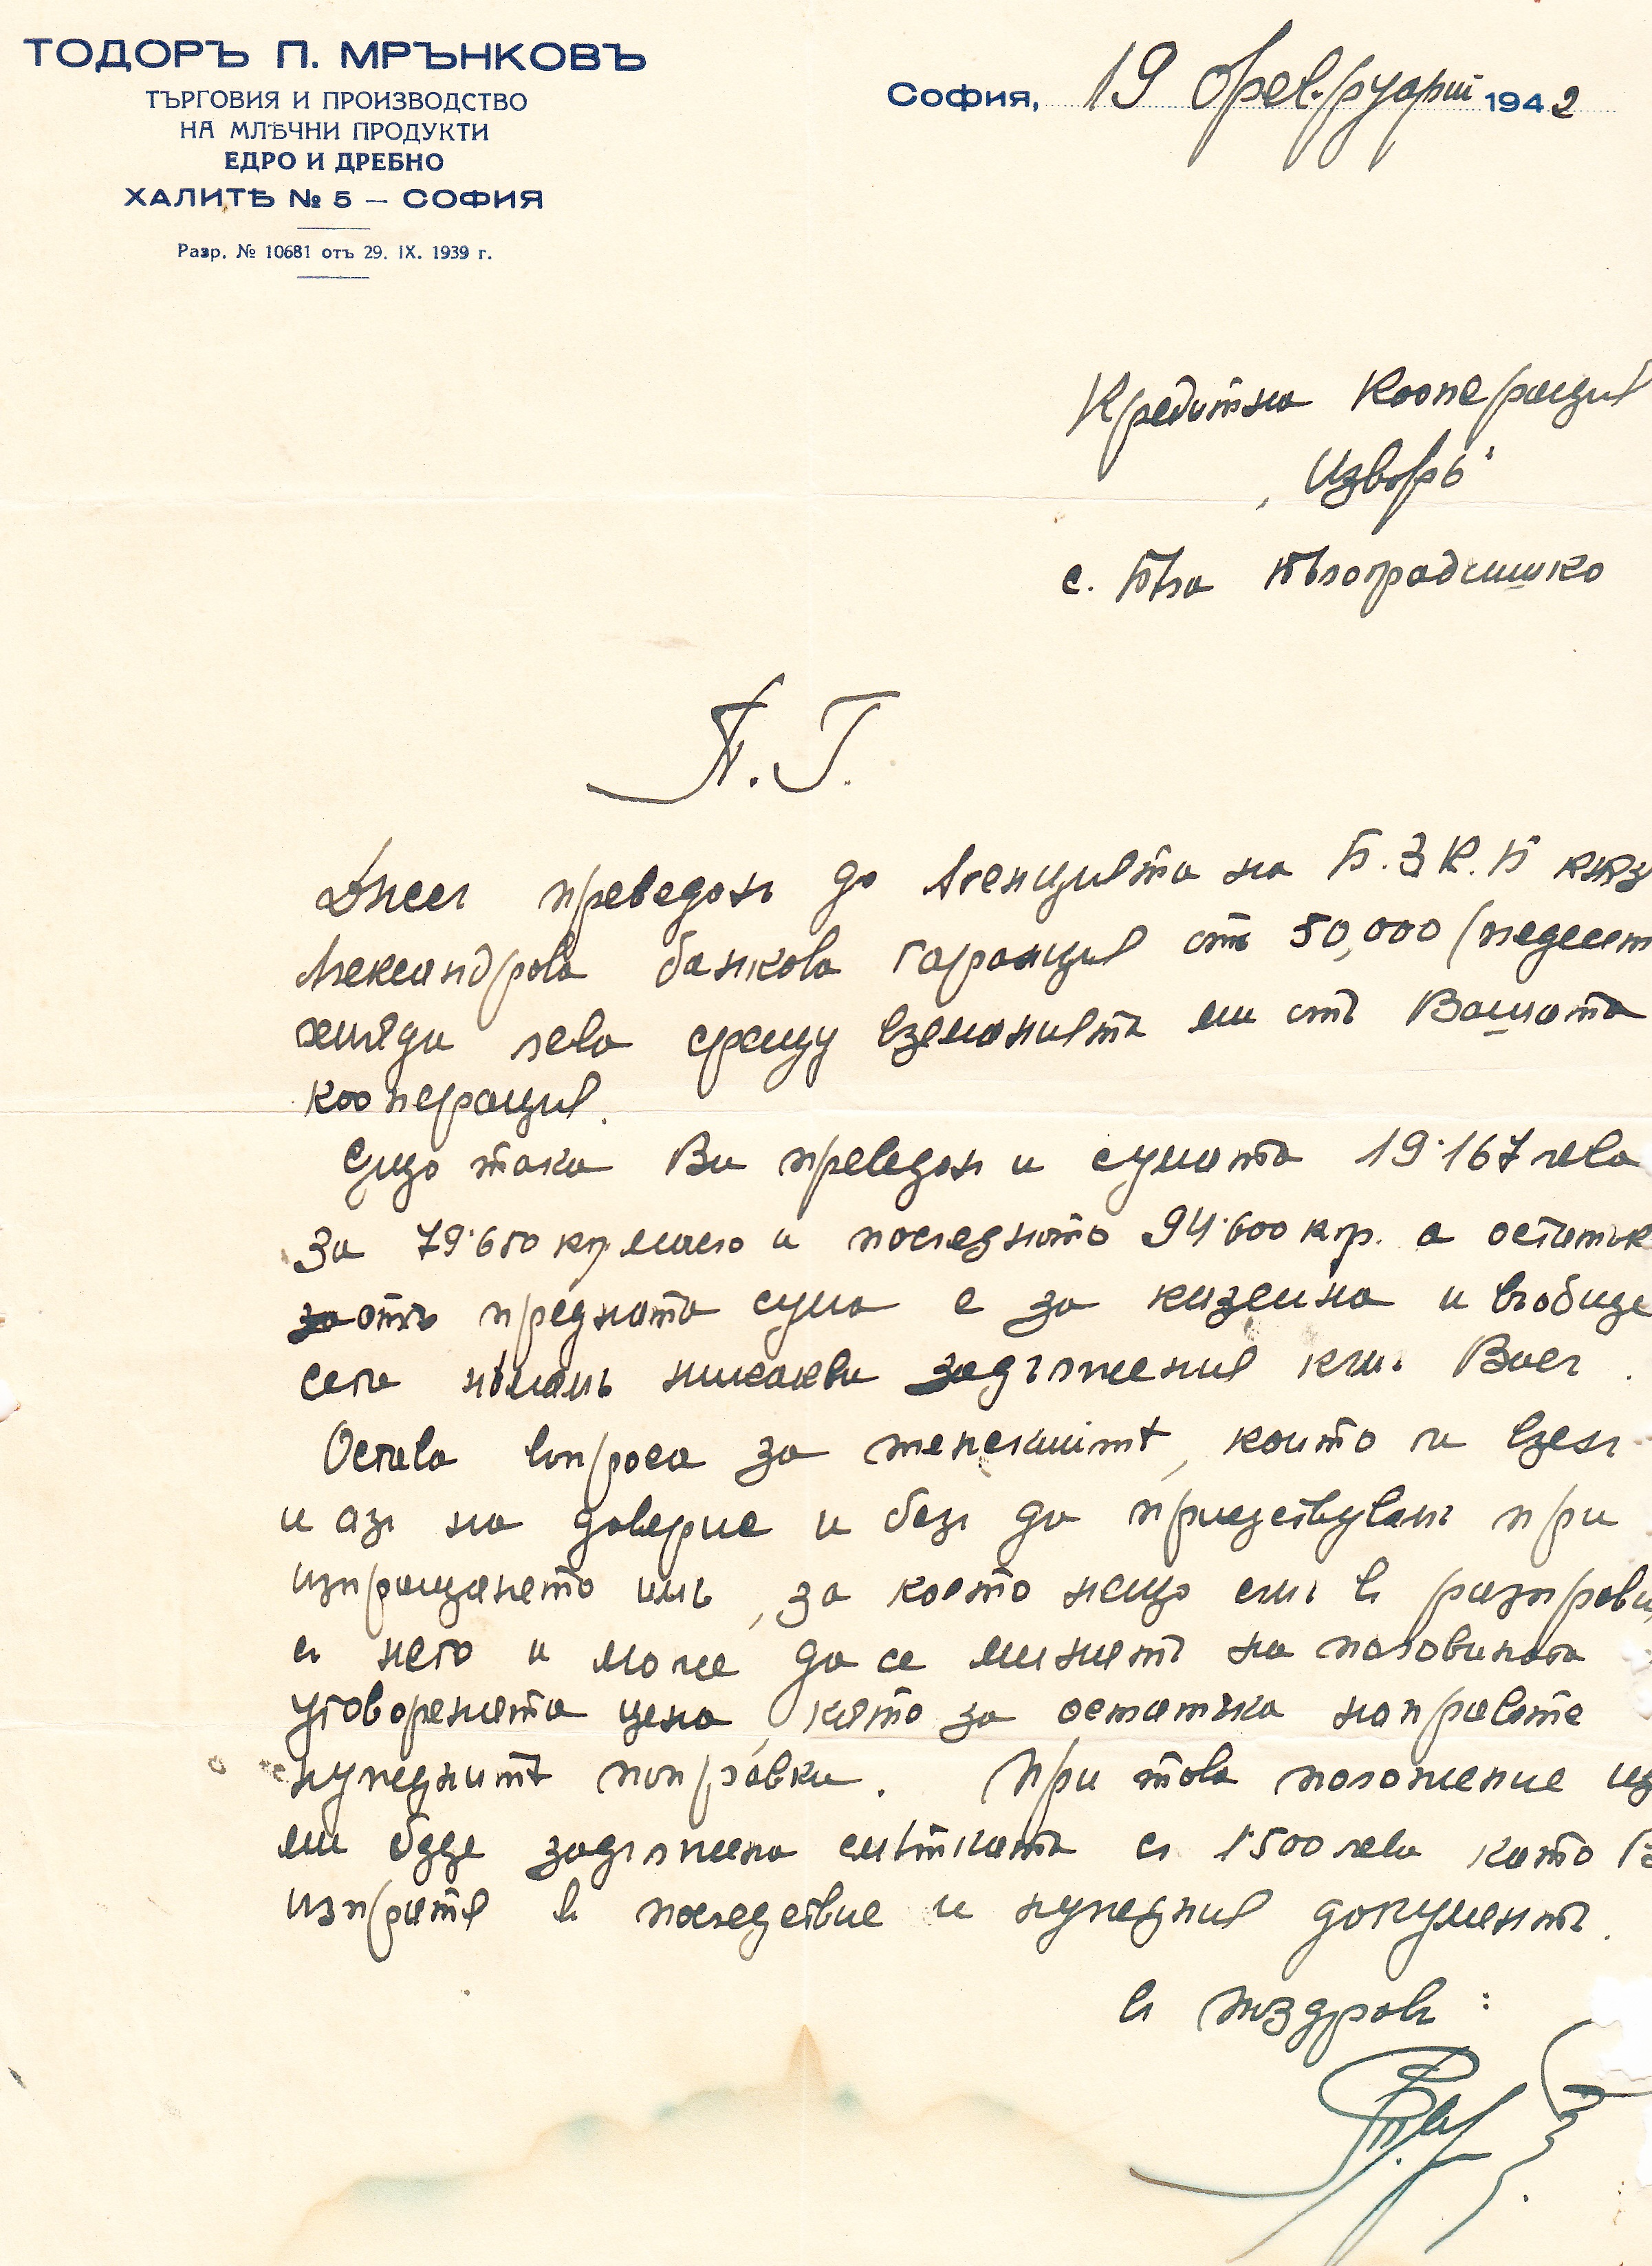 ТОДОРЪ П. МРЪНКОВЪ
ТЪРГОВИЯ И ПРОИЗВОДСТВО
НА МЛѢЧНИ ПРОДУКТИ
ЕДРО И ДРЕБНО
ХАЛИТѢ № 5 — СОФИЯ
Разр. № 10681 отъ 29. IX. 1939 г.
София, 19 февруарий 1942
Кредитна Кооперация
„Изворъ“
с. Бѣла Бѣлоградчишко
П. Г.
Днесъ преведохъ до Агенцията на Б.З.К.Б
Александрово банкова гаранция отъ 50,000 (педесеть
хиляди лева срещу вземанията ми отъ Вашата
кооперация.
Също така Ви преведохъ и сумата 19·167 лева
за 79·650 кгр масло и последното 94·600 кгр. а остатъка
отъ предната сума е за казеина и въобще
сега нѣмамъ никакви задължения къмъ Васъ.
Остава въпроса за тенекиитѣ, които ги взехъ
и азъ на доверие и безъ да присѫствувамъ при
изпращането имъ, за което нещо съмъ въ
съ него и може да се минатъ на половината
уговорената цена, като за остатъка направите
нуждниятѣ поправки. При това положение
ми бѫде задължена смѣтката съ 1500 лева като
изпратя въ последствие и нуждния документъ.
Съ поздравъ: